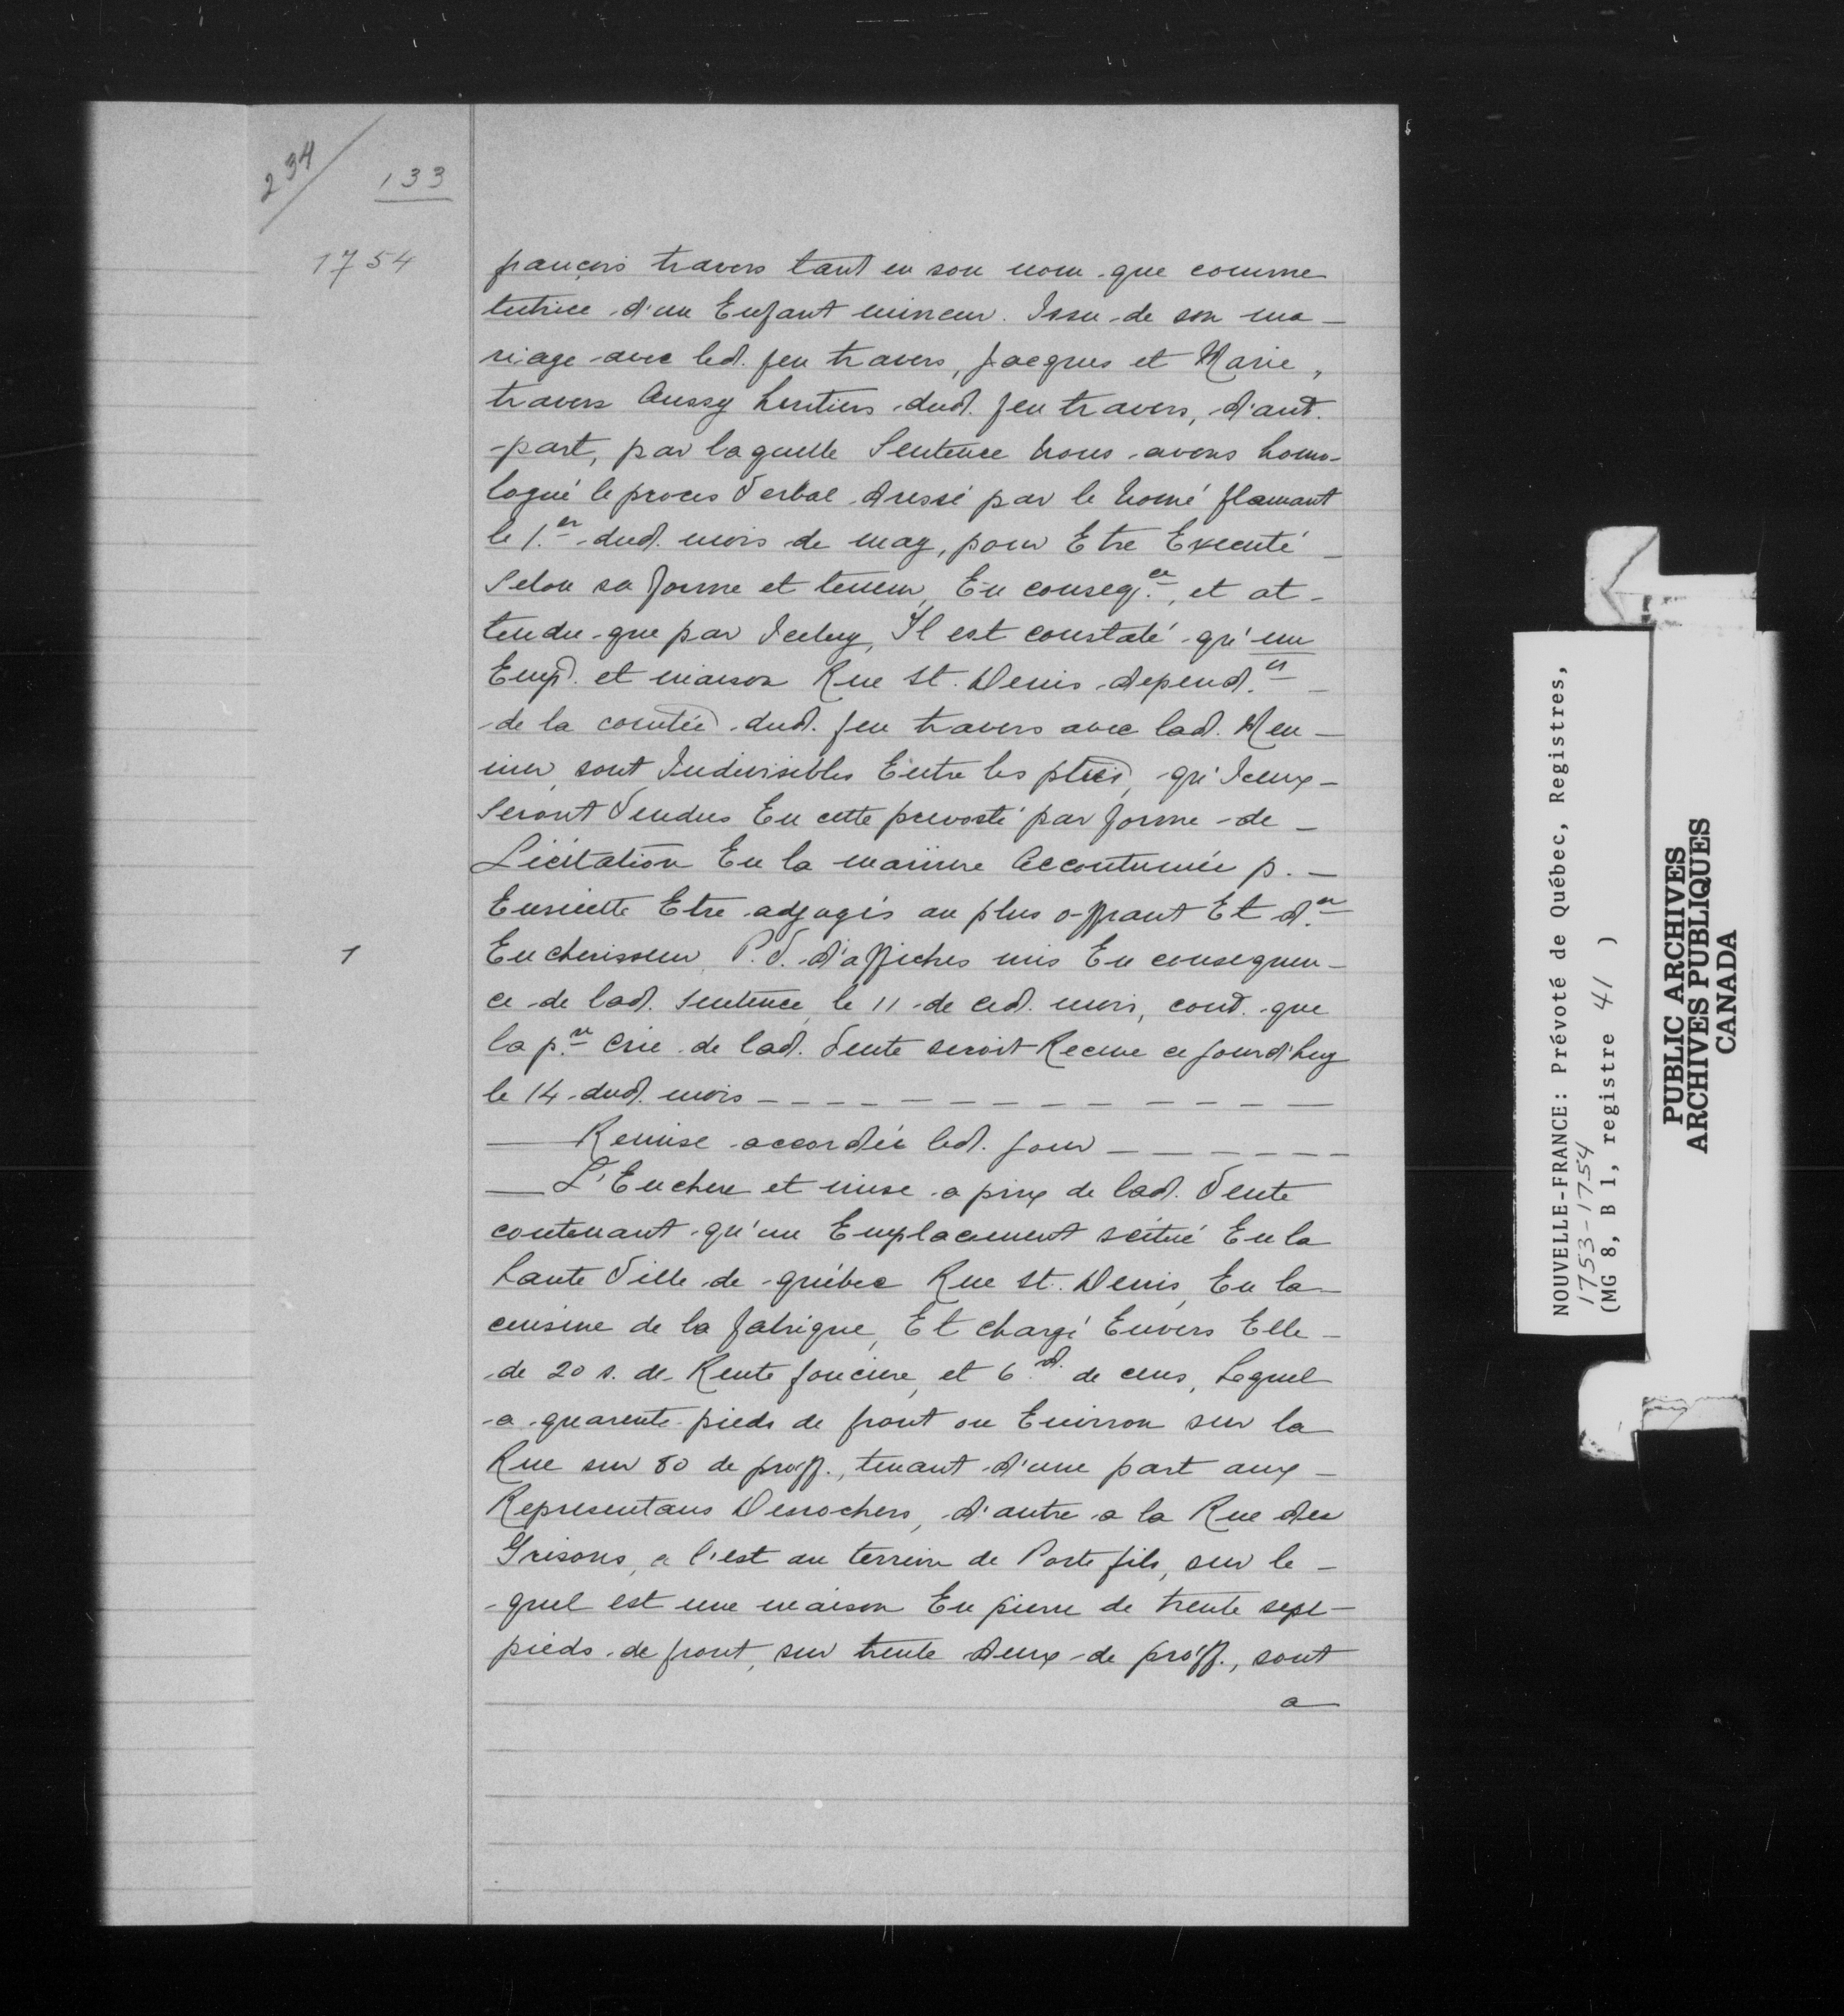 234
133
1754
françois travers tant en son nom que comme
tutrice d'un Enfant mineur. Issu de son ma-
riage avec led. feu travers, Jacques et Marie,
travers Aussy heritiers dud. feu travers, d'aut.
part, par laquelle Sentence Nous avons homo-
logué le proces Verbal dressé par le Nomé flamant
le 1.er dud. mois de may, pour Etre Executé
Selon sa forme et teneur, En conseq.ce, et at-
tendu que par Iceluy, Il est constaté qu'un
Emp.t et maison Rue St. Denis depend.es
de la comtée dud. feu travers avec lad. Meu-
nier, sont Indivisibles Entre les pties, qu'Iceux
Seront Vendus En cette prevosté par forme de
Licitation En la maniere Accoutumée p.
Ensuitte Etre adjugés au plus offrant Et d.er
1
Encherisseur, P.V. d'affiches mis En consequen-
ce de lad. Sentence, le 11 de ced. mois, cont. que
la p.re Criée de lad. Vente seroit Receue ce jourd'huy
le 14 dud. mois
Remise accordée led. jour
L'Enchere et mise a prix de lad. Vente
contenant qu'un Emplacement scitué En la
haute Ville de québec Rue St. Denis, En la
censive de la fabrique, Et chargé Envers Elle
de 20 s. de Rente fonciere, et 6.d. de cens, Lequel
a quarente pieds de front ou Environ sur la
Rue sur 80 de proff., tenant d'une part aux
Representans Desrochers, d'autre a la Rue des
Grisons, a l'est au terrein de Porte fils, sur le-
quel est une maison En pierre de trente sept
pieds de front, sur trente deux de proff., sont
a
NOUVELLE-FRANCE: Prévoté de Québec, Registres,
1753-1754
(MG 8, B 1, registre 41 )
PUBLIC ARCHIVES
ARCHIVES PUBLIQUES
CANADA